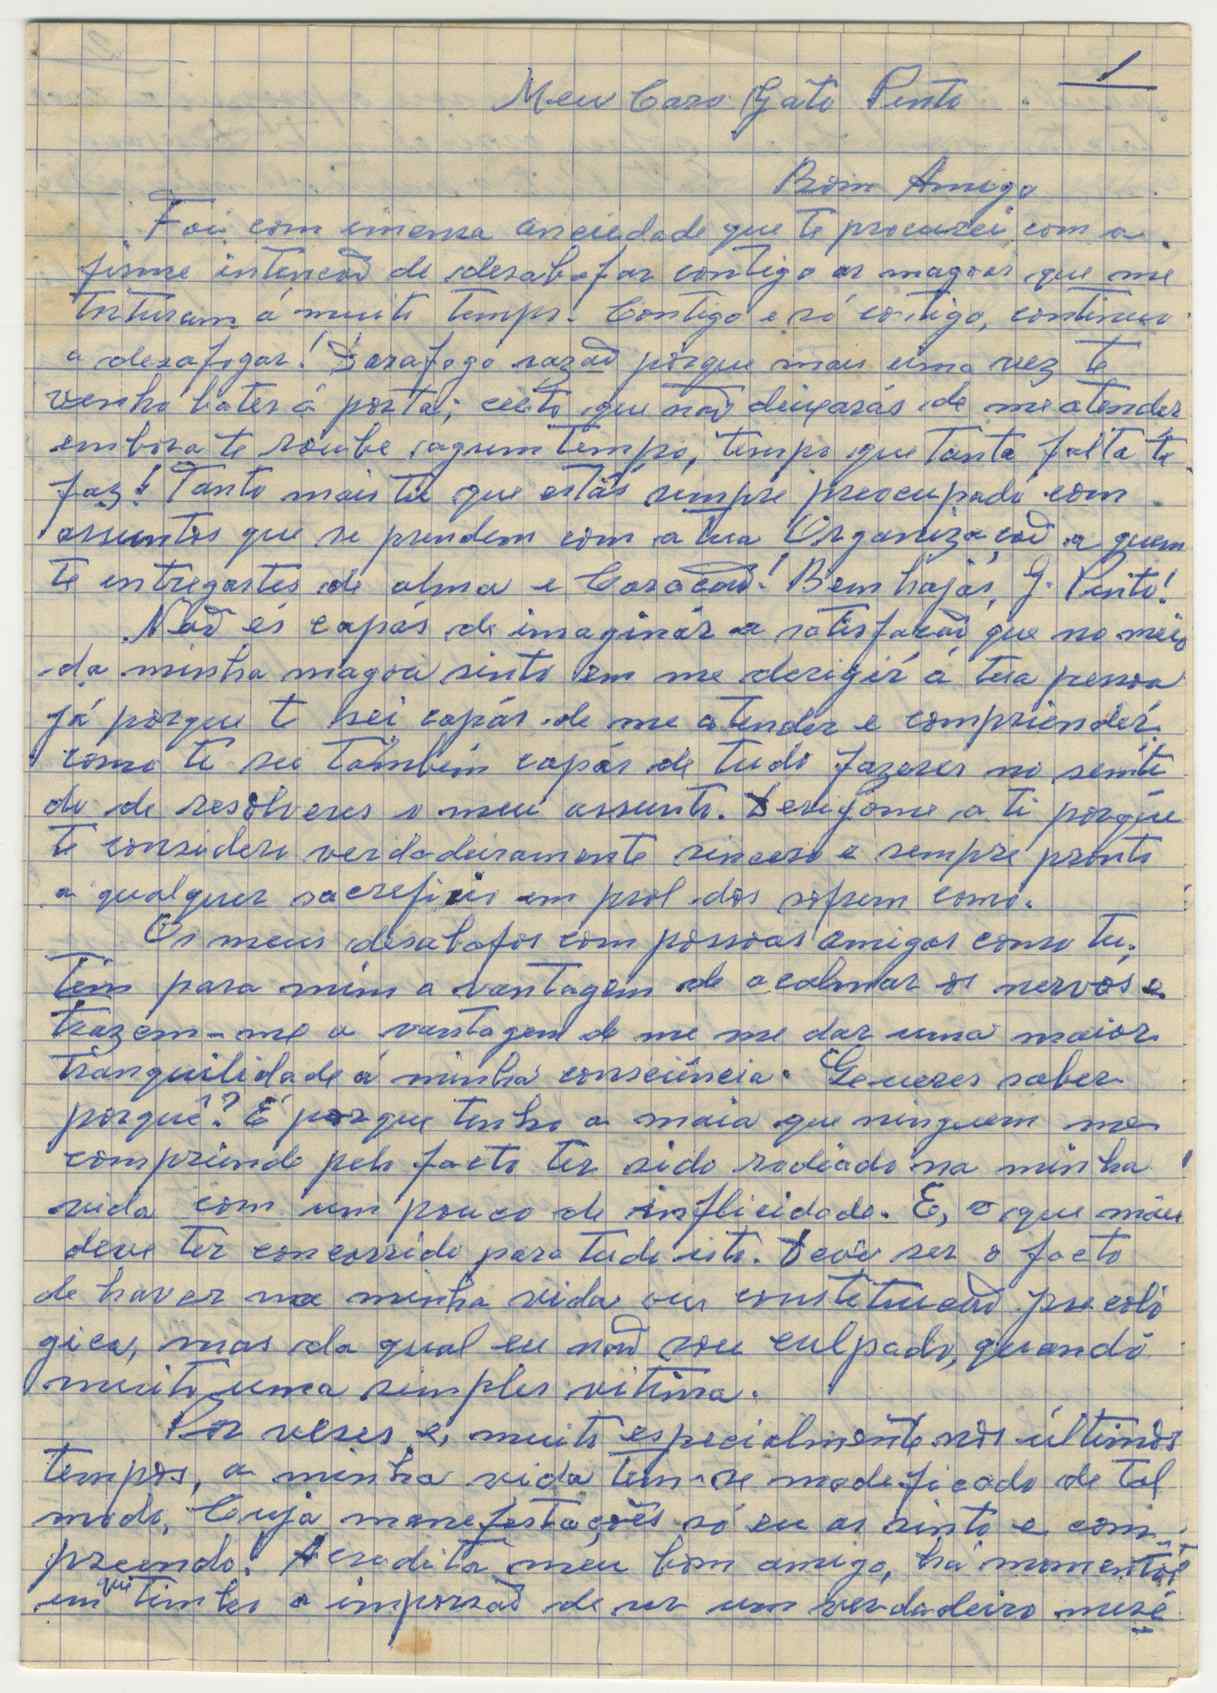 1
Meu Caro Gato Pinto
Bom Amigo
Foi com imensa anciedade que te procurei, com a
firme intenção de desabafar contigo as magoas que me
torturam á muito tempo. Contigo e só contigo, continuo
a desafogar! Desafogo razaõ porque mais uma vez te
venho bater á porta; certo que naõ deixarás de me atender
embora te roube agum tempo, tempo que tanta falta te
faz! Tanto mais tu que estás sempre preocupado com
assuntos que se prendem com a tua Organizaçaõ a quem
te entregastes de alma e Coraçaõ! Bem hajas, G. Pinto!
Naõ és capás de imaginár a satisfaçaõ que no meio
da minha magoa sinto em me derigír á tua pessoa
já porque te sei capás de me atender e compriender
como te sei também capás de tudo fazeres no senti
do de resolveres o meu assunto. Derigome a ti porque
te considero verdadeiramente sincero e sempre pronto
a qualquer sacrefiçio em prol dos sofrem como.
Os meus desabafos com pessoas amigas como tu,
têm para mim a vantagem de acalmar os nervos e
trazem-me a vantagem de me me dar uma maior
tranquilidade á minha consciência. Queres saber
porquê? É porque tenho a maia que ninguem me
compriende pelo facto ter sido rodiado na minha
vida com um pouco de inflicidade. E, o que mais
deve ter concorrido para tudo isto. Deve ser o facto
de haver na minha vida ou constituiçaõ psecoló
gica, mas da qual eu naõ sou culpado, quando
muito uma simples vitima.
Por veses e, muito especialmente nos últimos
tempos, a minha vida tem-se modeficado de tal
modo, Cuja manefestações só eu as sinto e com-
preendo. Acredita meu bom amigo, há momentos
em que tenho a impressaõ de ser um verdadeiro misé